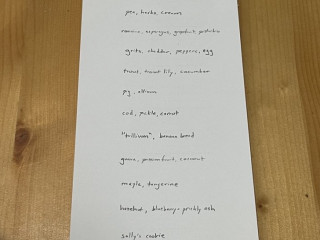 pea, herbs, cream
romaine, asparagus, grapefruit, pistachio
grits, cheddar, peppers, egg
trout, trout lily, cucumber
pig, allium
cod, pickle, carrot
"trillium", banana bread
guava, passionfruit, coconut
maple, tangerine
hazelnut, blueberry + prickly ash
sally's cookie